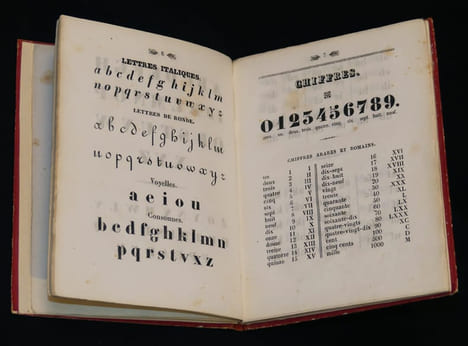 6
LETTRES ITALIQUES.
a b c d e f g h i j k l m
n o p q r s t u v x y z
LETTRES DE RONDE.
a b c d e f g h i j k l m
n o p q r s t u v x y z
Voyelles.
a e i o u
Consonnes.
b c d f g h j k l m n
p q r s t v x z
7
CHIFFRES.
0123456789.
zéro. un. deux. trois. quatre. cinq. six. sept. huit. neuf.
CHIFFRES ARABES ET ROMAINS.
un 1 I seize 16 XVI
deux 2 II dix-sept 17 XVII
trois 3 III dix-huit 18 XVIII
quatre 4 IV dix-neuf 19 XIX
cinq 5 V vingt 20 XX
six 6 VI trente 30 XXX
sept 7 VII quarante 40 XL
huit 8 VIII cinquante 50 L
neuf 9 IX soixante 60 LX
dix 10 X soixante-dix 70 LXX
onze 11 XI quatre-vingts 80 LXXX
douze 12 XII quatre-vingt-dix 90 XC
treize 13 XIII cent 100 C
quatorze 14 XIV cinq cents 500 D
quinze 15 XV mille 1000 M